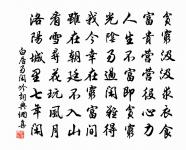 貧窮汲汲求衣食
富貴營營役心力
人生不富即貧窮
光陰易過閑難得
我今幸在窮富間
雖在朝廷不入山
看雪尋花玩風月
洛陽城里七年閑
白居易閑吟詩典網書